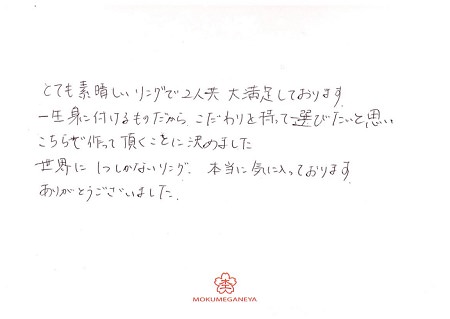 とても素晴しいリングで2人共大満足しております
一生身に付けるものだから、こだわりを持って選びたいと思い
こちらで作って頂くことに決めました
世界に1つしかないリング、本当に気に入っております
ありがとうございました.
MOKUMEGANEYA